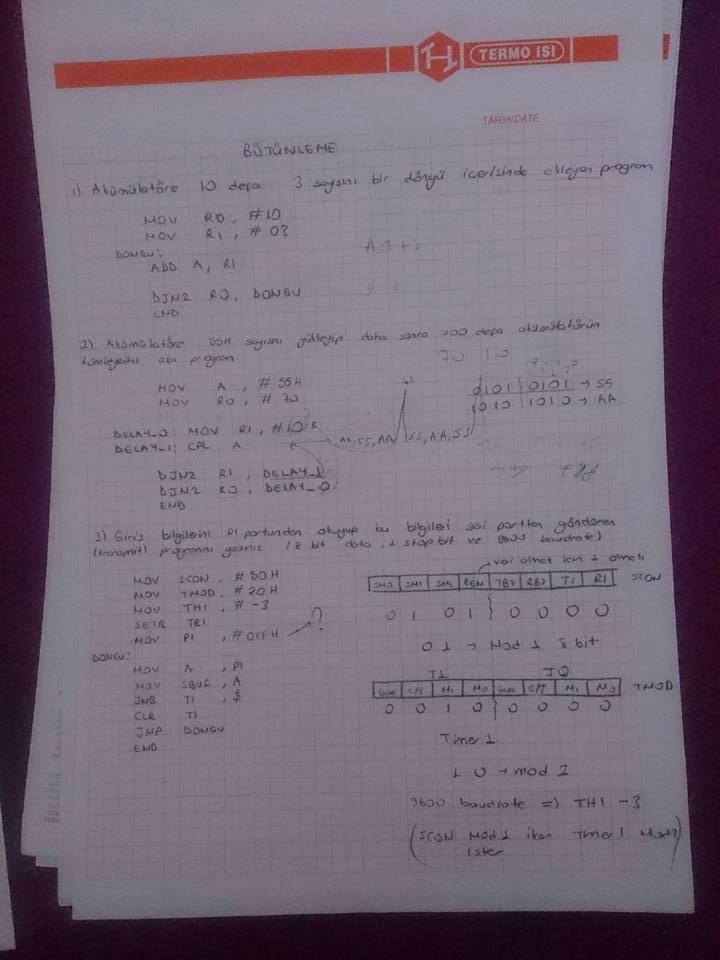 TERMO ISI
TARİH/DATE
BÜTÜNLEME
1) Akümülatöre 10 defa 3 sayısını bir döngü içerisinde ekleyen program
MOV R0, #10
MOV R1, #03
DONGU:
ADD A, R1
DJNZ R0, DONGU
END
2) Akümülatöre 55H sayısını yükleyip daha sonra 700 defa akümülatörün
tümleyenini alan program
70 10
MOV A, #55H
MOV R0, #70
0101 0101 → 55
1010 1010 → AA
DELAY_0: MOV R1, #10
DELAY_1: CPL A
AA, 55, AA 55, AA, 55
DJNZ R1, DELAY_1
DJNZ R0, DELAY_0
END
3) Giriş bilgilerini P1 portundan okuyup bu bilgileri seri porttan gönderen
(transmit) programı yazınız (8 bit data, 1 stop bit ve 9600 baudrate)
veri almak için 1 olmalı
MOV SCON, #50H
MOV TMOD, #20H
MOV TH1, #-3
SETB TR1
MOV P1, #0FFH → ?
SM0 SM1 SM2 REN TB8 RB8 TI RI SCON
0 1 0 1 0 0 0 0
0 1 → Mod 1 8 bit
DONGU:
MOV A, P1
MOV SBUF, A
JNB TI, $
CLR TI
JMP DONGU
END
T1 T0
Gate C/T M1 M0 Gate C/T M1 M0 TMOD
0 0 1 0 0 0 0 0
Timer 1
1 0 → mod 2
9600 baudrate => TH1 -3
(SCON Mod 1 iken Timer 1 Mod 2
ister)